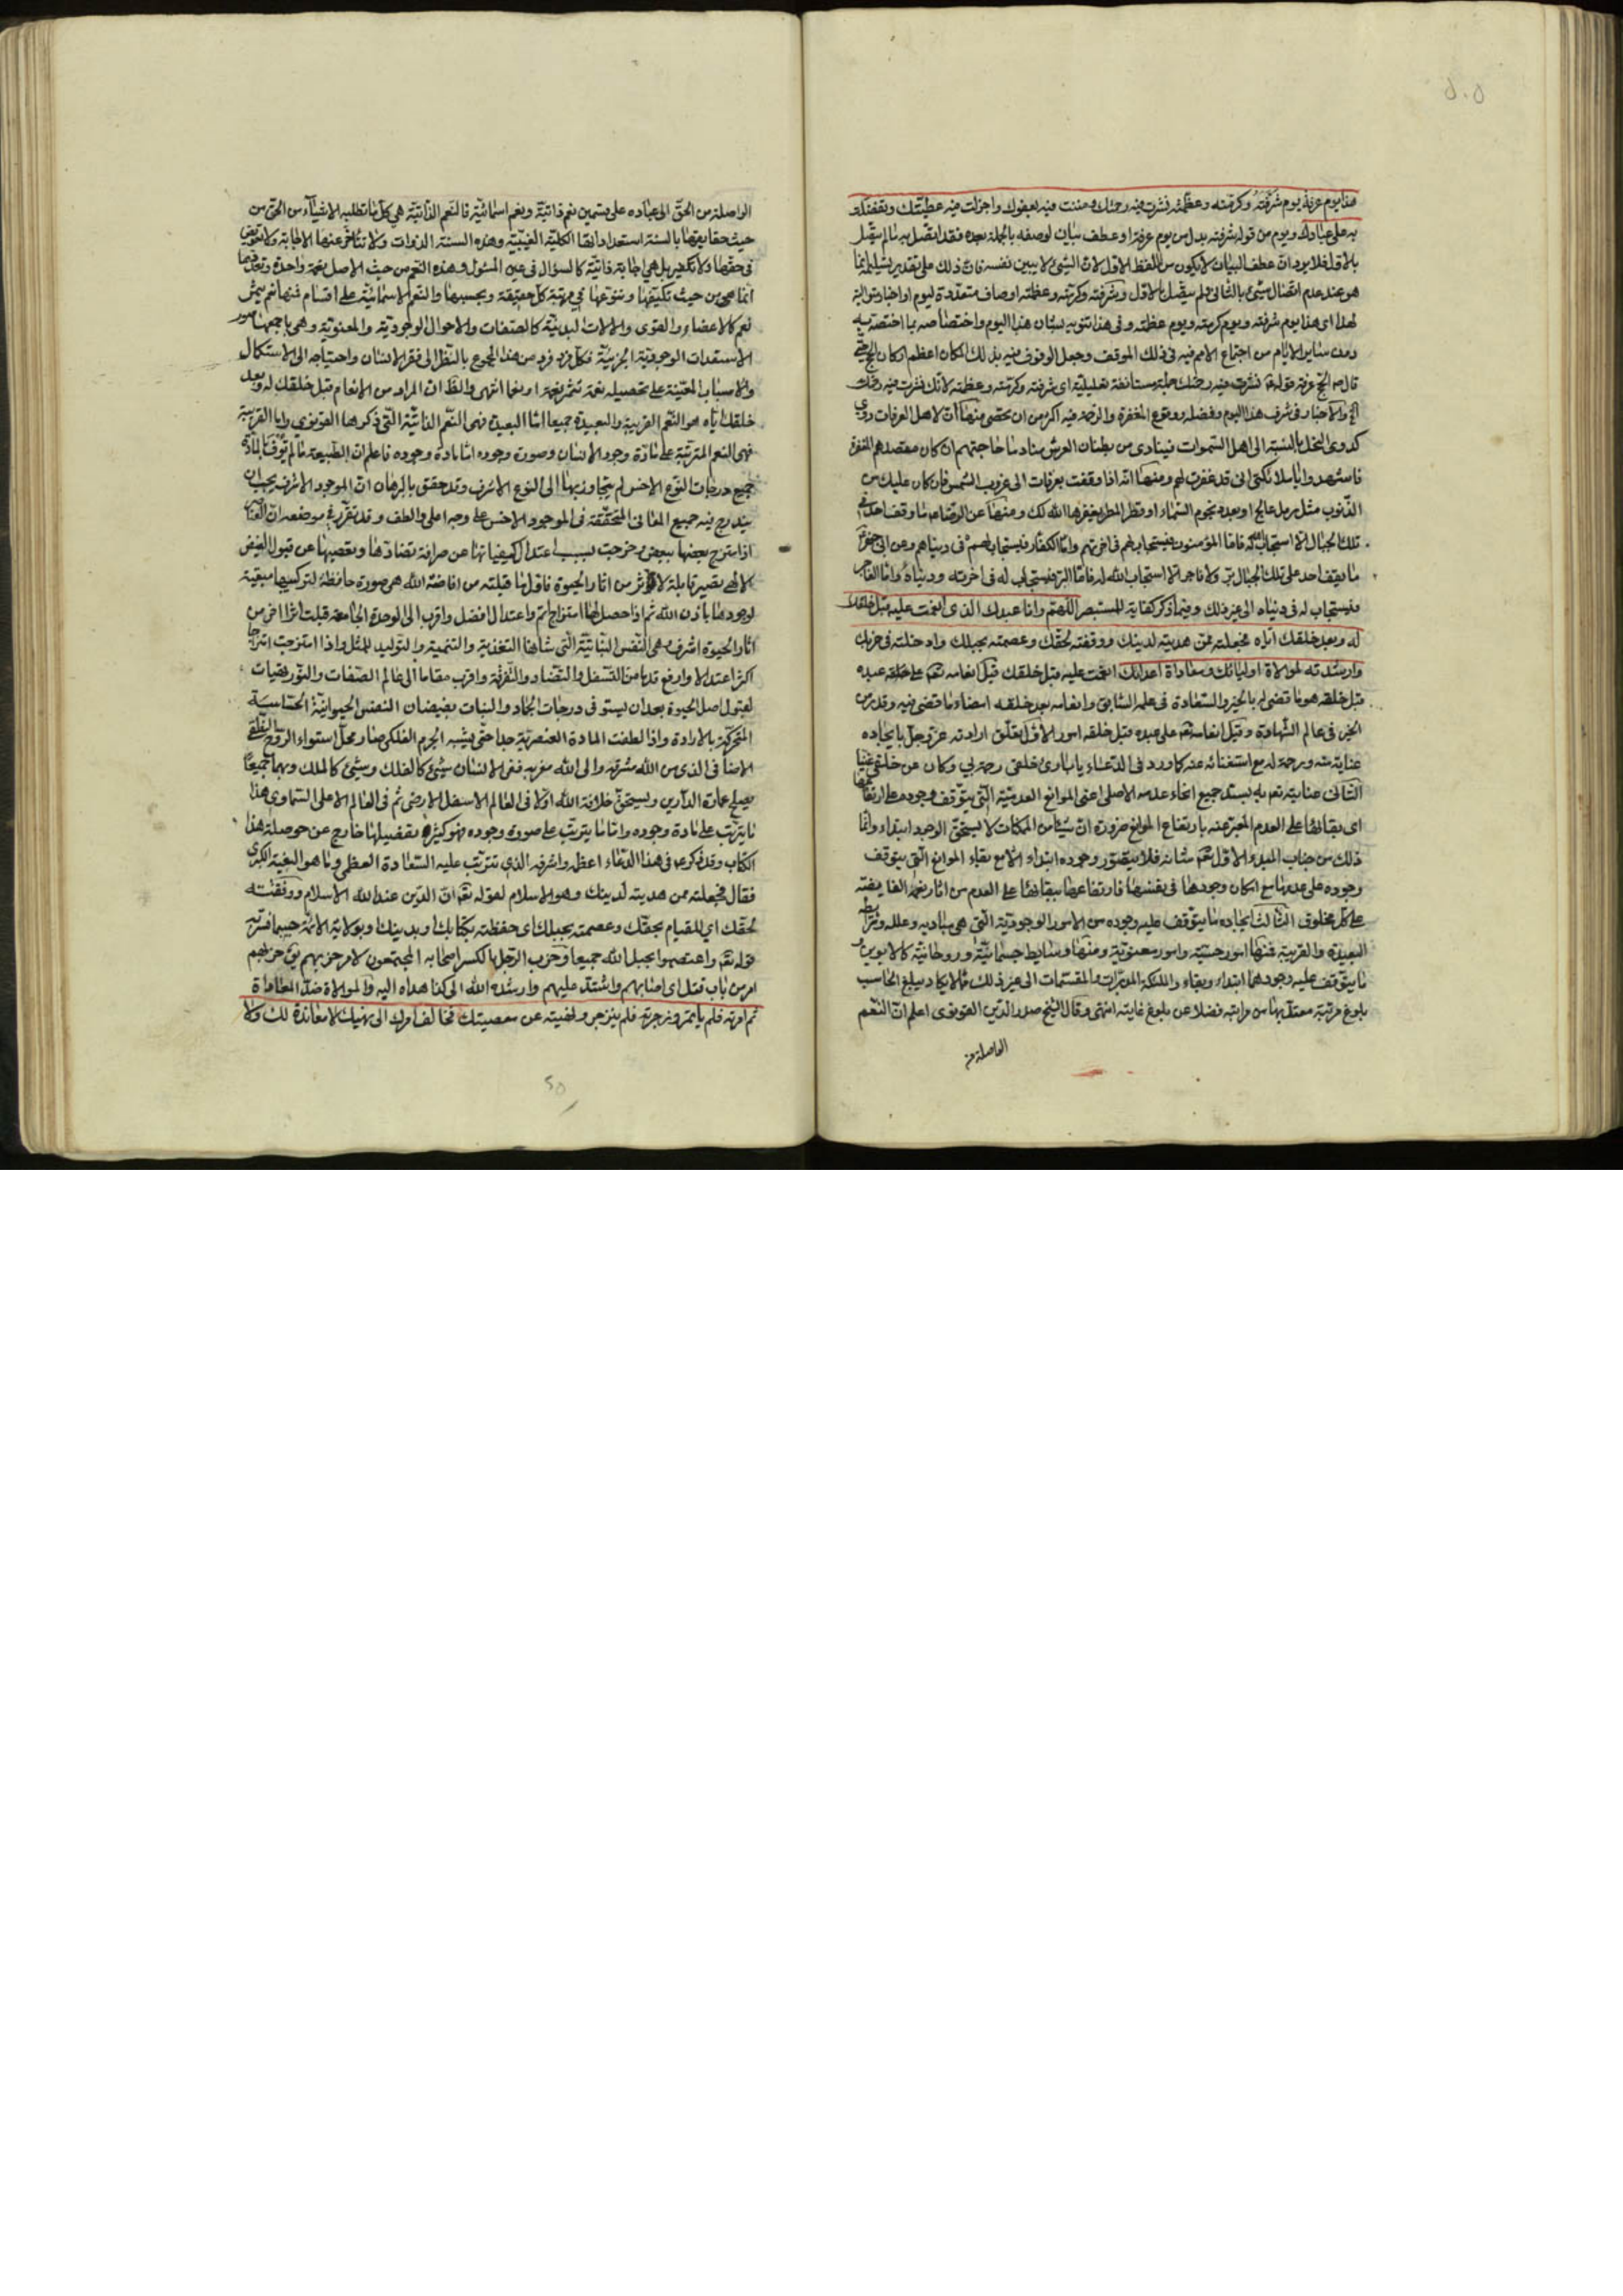 ٥٠٥
هذا يوم عرفة يوم شرفته وكرمته وعظمته نشرت فيه رحمتك ومننت فيه بعفوك واجزلت فيه عطيتك وتفضلت
به على عبادك ويوم من قوله شرفته بدل من يوم عرفة او عطف بيان لوصفه بالجملة بعده فقد اتصل به ما لم يتصل
بالاول فلا يرد ان عطف البيان لا يكون من اللفظ الاول لان الشيء لا يبين نفسه فان ذلك على تقدير تسليمه انما
هو عند عدم اتصال شيء بالثاني لم يتصل بالاول وشرفته وكرمته وعظمته اوصاف متعددة ليوم او اخبار متوالية
لهذا اى هذا يوم شرفته ويوم كرمته ويوم عظمته وفى هذا تنويه بشان هذا اليوم واختصاصه بما اختصه به
دون ساير الايام من اجتماع الامم فيه فى ذلك الموقف وجعل الوقوف فيه بذلك المكان اعظم اركان الحج حتى
قال الحج عرفة قوله نشرت فيه رحمتك جملة مستانفة تعليلية اى شرفته وكرمته وعظمته لانك نشرت فيه رحمتك
الخ والاخبار فى شرف هذا اليوم وفضله ووقوع المغفرة والرحمة فيه اكثر من ان تحصى منها ان لاهل العرفات دوي
كدوى النحل بالنسبة الى اهل السموات فينادى من بطنان العرش مناد ما حاجتهم ان كان مقصدهم المغفرة
فاشهدوا يا ملائكتى انى قد غفرت لهم ومنها انه اذا وقفت بعرفات الى غروب الشمس فان كان عليك من
الذنوب مثل رمل عالج او بعدد نجوم السماء او قطر المطر يغفرها الله لك ومنها عن الرضا ما وقف احد فى
تلك الجبال الا استجاب الله له فاما المؤمنون فيستجاب لهم فى اخرتهم واما الكفار فيستجاب لهم فى دنياهم وعن ابى جعفر
ما يقف احد على تلك الجبال بر ولا فاجر الا استجاب الله له فاما البر فيستجاب له فى اخرته ودنياه واما الفاجر
فيستجاب له فى دنياه الى غير ذلك وفيما ذكر كفاية للمستبصر اللهم وانا عبدك الذى انعمت عليه قبل خلقك
له وبعد خلقك اياه فجعلته ممن هديته لدينك ووفقته لحقك وعصمته بحبلك وادخلته فى حزبك
وارشدته لموالاة اوليائك ومعاداة اعدائك انعمت عليه قبل خلقك قيل انعامه تعالى على خلقه عبده
قبل خلقه هو ما قضى له بالخير والسعادة فى علمه السابق وانعامه بعد خلقه امضاء ما قضى فيه وقدر من
الخير فى عالم الشهادة وقيل انعامه تعالى على عبده قبل خلقه امور الاول تعلق ارادته عز وجل بايجاده
عناية منه ورحمة له مع استغنائه عنه كما ورد فى الدعاء يا بارى خلقى رحمة بي وكان عن خلقى غنيا
الثانى عنايته تعالى به بسد جميع انحاء عدمه الاصلى اعنى الموانع العدمية التى يتوقف وجوده على ارتفاعها
اى بقائها على العدم المعبر عنه بارتفاع الموانع ضرورة ان شيئا من الممكنات لا يستحق الوجود ابتداء وانما
ذلك من جناب المبدء الاول تعالى شانه فلا يتصور وجوده ابتداء الا مع بقاء الموانع التى يتوقف
وجوده على عدمها مع امكان وجودها فى نفسها فارتفاعها ببقائها على العدم من اثار نعمه الفايضة
على كل مخلوق الثالث ايجاده ما يتوقف عليه وجوده من الامور الوجودية التى هى مباديه وعلله وشرائطه
البعيدة والقريبة فمنها امور حسية وامور معنوية ومنها وسايط جسمانية وروحانية كالابوين
ما يتوقف عليه وجودهما ابتداء وبقاء والملئكة المدبرات والمقسمات الى غير ذلك مما لا يكاد يبلغ الحاسب
بلوغ مرتبة معتد بها من مراتبه فضلا عن بلوغ غايته انتهى وقال الشيخ صدر الدين القونوى اعلم ان النعم
الواصلة من
الواصلة من الحق الى عباده على قسمين نعم ذاتية ونعم اسمائية فالنعم الذاتية هي كل ما تطلبه الاشياء من الحق من
حيث حقايقها بالسنة استعداداتها الكلية الغيبية وهذه السنة الذوات ولا تتاخر عنها الاجابة ولا تعويق
فى حقها ولا تكفير بل هى اجابة ذاتية كالسؤال فى عين المسئول وهذه النعم من حيث الاصل نعمة واحدة وتعددها
انما هى من حيث تكيفها وتنوعها فى مرتبة كل حقيقة وبحسبها والنعم الاسمائية على اقسام فمنها نعم
نعم كالاعضاء والقوى والالات البدنية كالصفات والاحوال الوجودية والمعنوية وهى باجمعها صور
الاستعدادات الوجودية الجزئية فكل فرد فرد من هذا المجموع بالنظر الى فقر الانسان واحتياجه الى الاستكمال
والاسباب المعينة على تحصيله نعمة تثمر نعمة او نعما انتهى والظ ان المراد من الانعام قبل خلقك له وبعد
خلقك اياه هو النعم القريبة والبعيدة جميعا اما البعيدة فهى النعم الذاتية التى ذكرها القونوى واما القريبة
فهى النعم المترتبة على مادة وجود الانسان وصورة وجوده اما مادة وجوده فاعلم ان الطبيعة ما لم توف المادة
جميع درجات النوع الاخس لم يتجاوز بها الى النوع الاشرف وقد حقق بالبرهان ان الموجود الاشرف يجب ان
يندرج فيه جميع المعانى المتحققة فى الموجود الاخس على وجه اعلى والطف وقد تقرر فى موضعه ان العناصر
اذا امتزج بعضها ببعض وخرجت بسبب اعتدال كيفياتها عن صرافة تضادها وتعصيها عن قبول الفيض
الالهى تصير قابلة لاثر من اثار الحيوة فاول ما قبلته من افاضة الله هى صورة حافظة لتركيبها مبقية
لوجودها باذن الله ثم اذا حصل لها امتزاج اتم واعتدال افضل واقرب الى الوحدة الجامعة قبلت اثرا اخر من
اثار الحيوة اشرف هى النفس النباتية التى شانها التغذية والتنمية والتوليد للمثل واذا امتزجت امتزاجا
اكثر اعتدالا وارفع قدما من التسفل والتضاد والتفرقة واقرب مقاما الى عالم الصفات والنور تهيات
لقبول اصل الحيوة بعد ان يستوفى درجات الجماد والنبات بفيضان النفس الحيوانية الحساسة
المتحركة بالارادة واذا لطفت المادة العنصرية جدا حتى يشبه الجرم الفلكى صار محل استواء الروح النطقى
الاضافى الذى من الله مشرقه والى الله مغربه ففى الانسان شيئ كالفلك وشيئ كالملك وبهما جميعا
يصلح عمارة الدارين ويستحق خلافة الله اولا فى العالم الاسفل الارضى ثم فى العالم الاعلى السماوى هذا
ما يترتب على مادة وجوده واما ما يترتب على صورة وجوده فهو كثيرة تفصيلها خارج عن حوصلة هذا
الكتاب وقد ذكر فى هذا الدعاء اعظمه واشرفه الذى تترتب عليه السعادة العظمى وما هو البغية الكبرى
فقال فجعلته ممن هديته لدينك وهو الاسلام لقوله تعالى ان الدين عند الله الاسلام ووفقته
لحقك اي للقيام بحقك وعصمته بحبلك اى حفظته بكتابك وبدينك وبولاية الائمة حسبما فسر به
قوله تعالى واعتصموا بحبل الله جميعا وحزب الرجل بالكسر اصحابه المجتمعون لامر حزبهم يق حزبهم
امر من باب قتل اى اصابهم واشتد عليهم وارشده الله الى كذا هداه اليه والموالاة ضد المعاداة
ثم امرته فلم ياتمر وزجرته فلم ينزجر ونهيته عن معصيتك فخالف امرك الى نهيك لا معاندة لك ولا